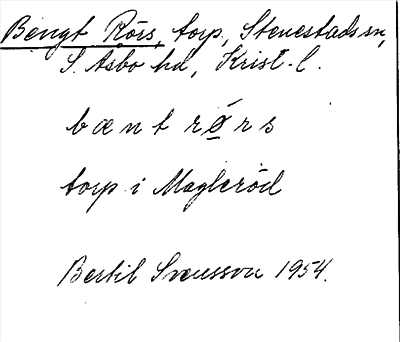 Bengt Rörs, torp, Stenestads sn,
S. Åsbo hd, Krist. l.
bænt rǿ̱rs
torp i Magleröd
Bertil Svensson 1954.